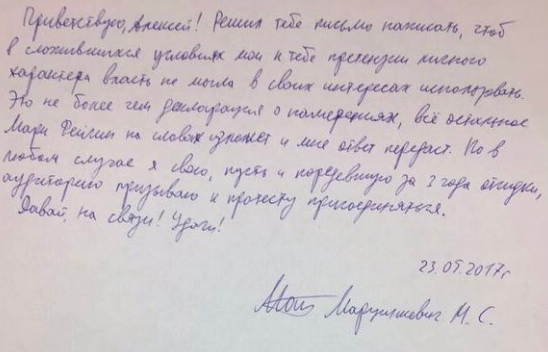 Приветствую, Алексей! Решил тебе письмо написать, чтоб
в сложившихся условиях мои к тебе претензии личного
характера власть не могла в своих интересах использовать.
Это не более чем декларация о намерениях, всё остальное
Марк Фейгин на словах изложит и мне ответ передаст. Но в
любом случае я свою, пусть и поредевшую за 3 года отсидки,
аудиторию призываю к протесту присоединяться.
Давай, на связи! Удачи!
23.05.2017г
Марцинкевич М. С.